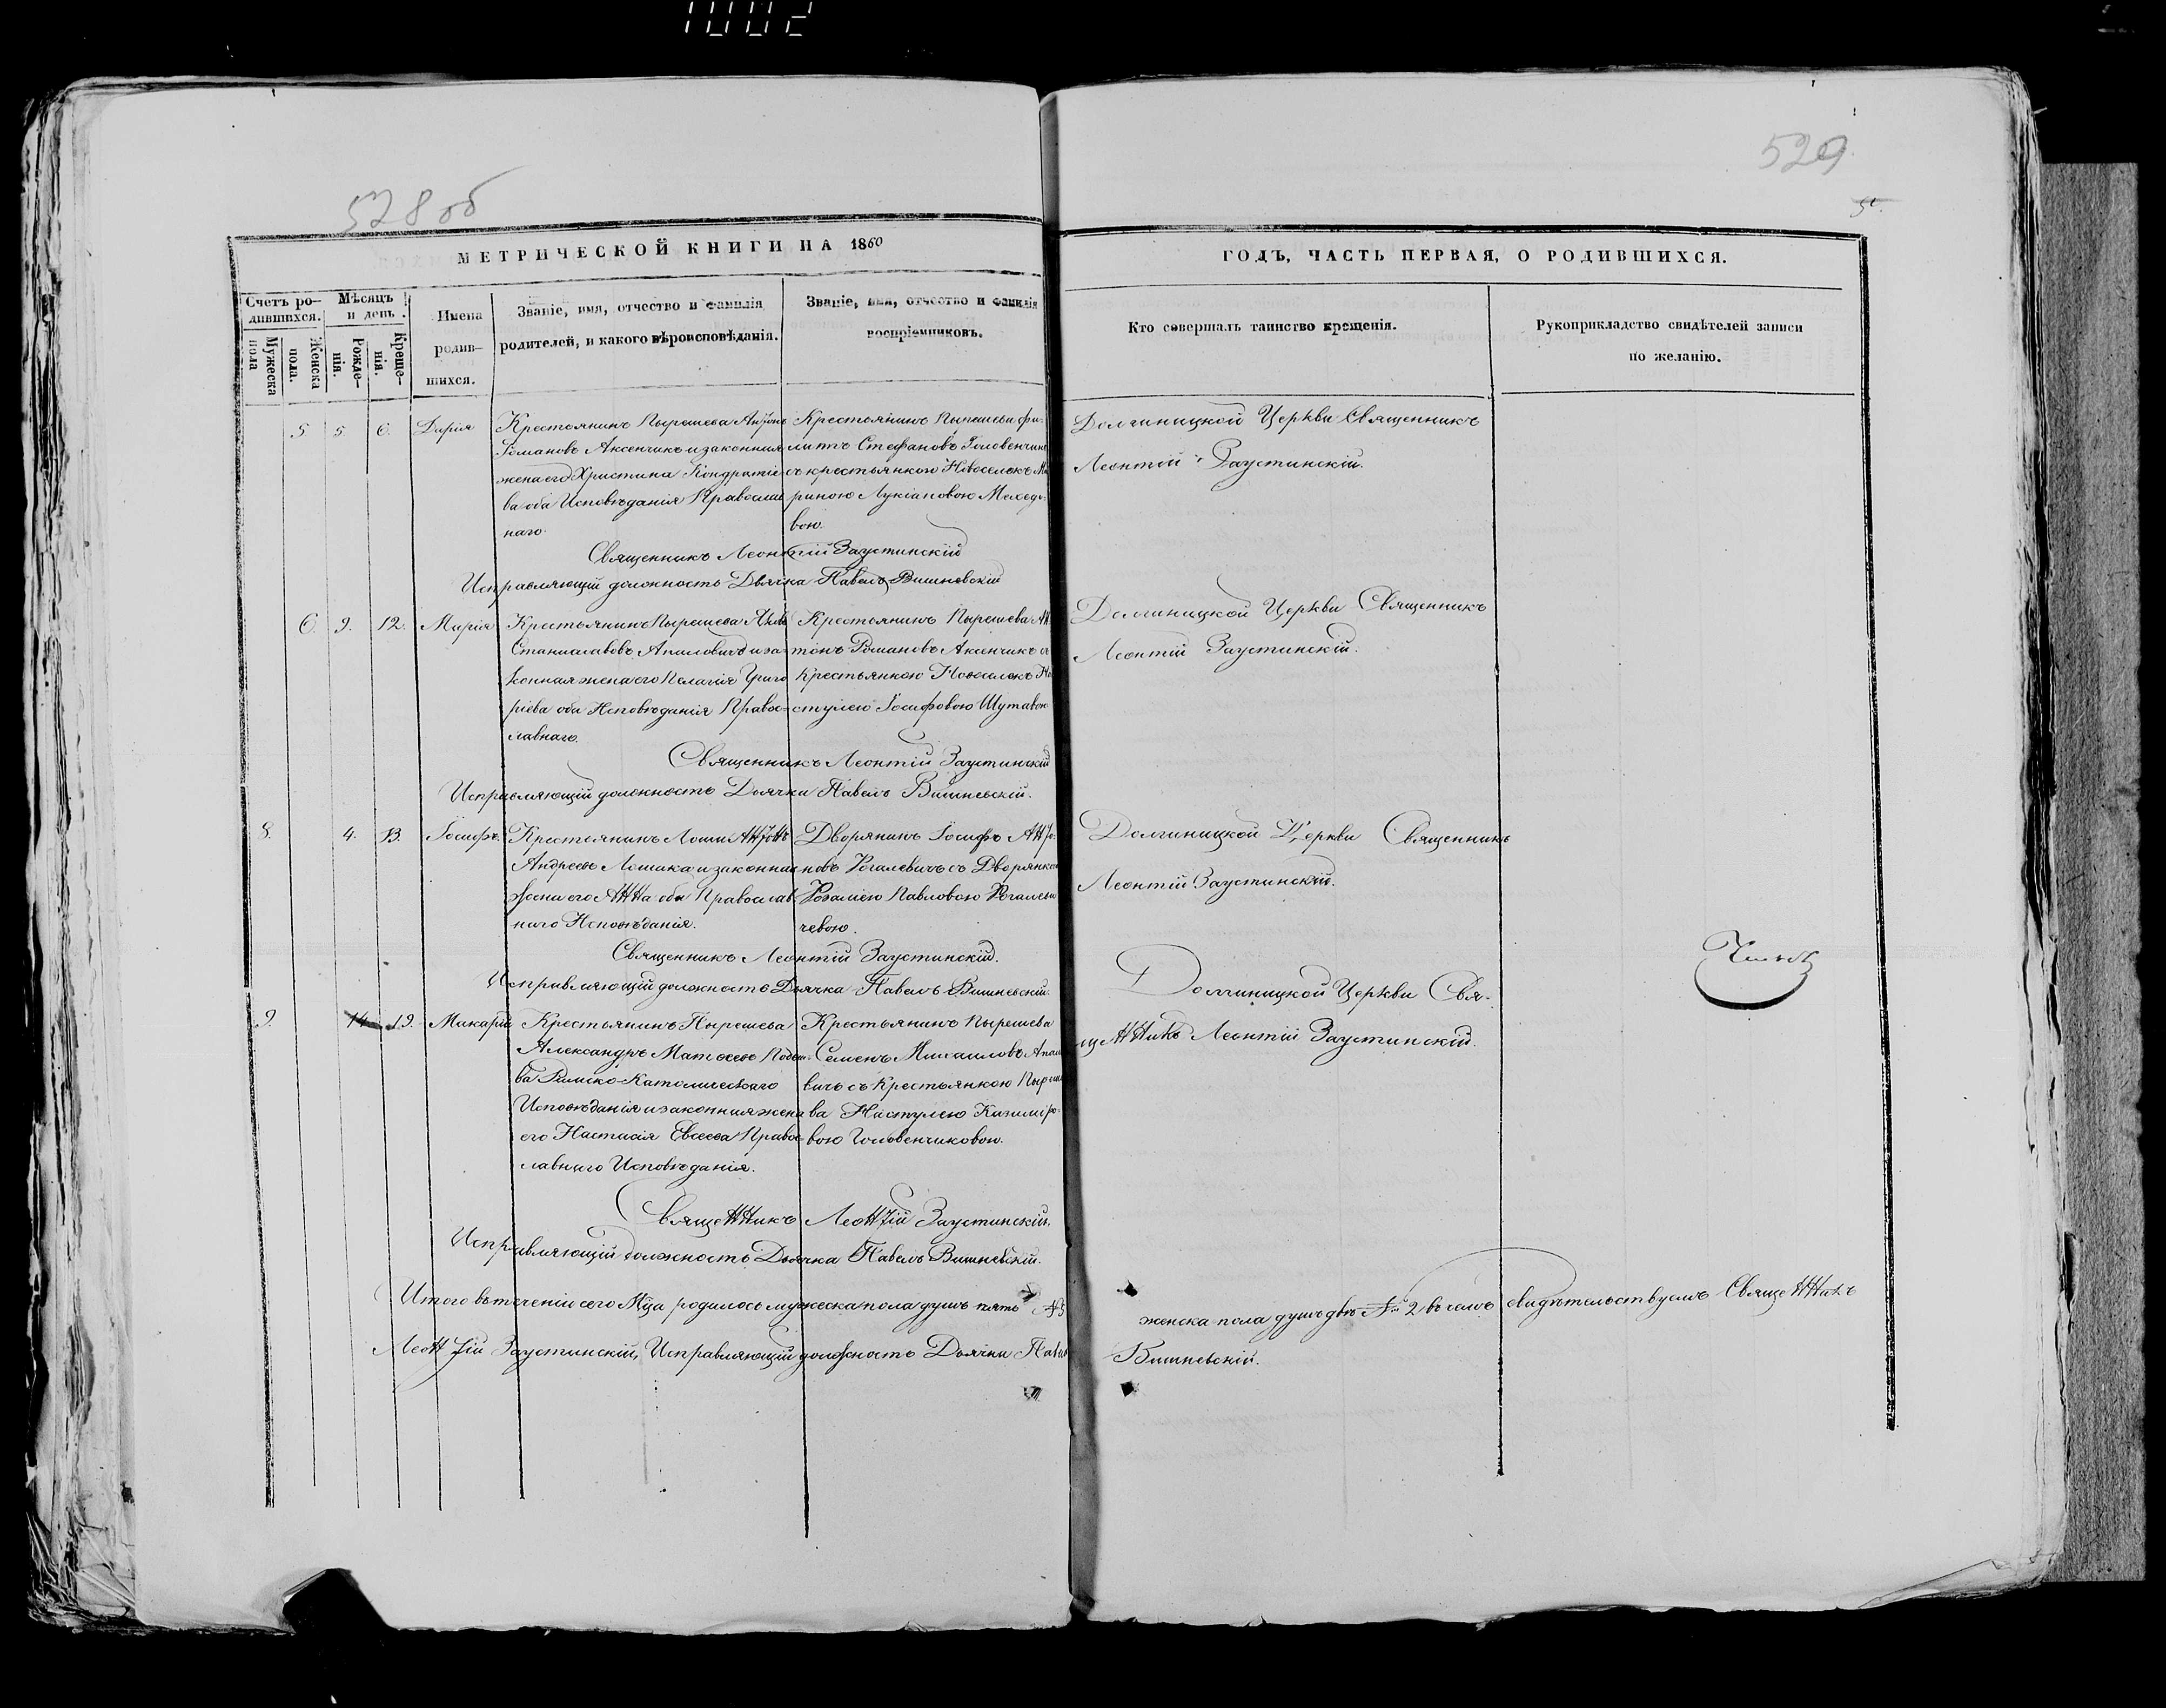 1002
528 об
529
МЕТРИЧЕСКОЙ КНИГИ НА 1860
ГОДЪ, ЧАСТЬ ПЕРВАЯ, О РОДИВШИХСЯ.
Счетъ ро-
дившихся.
Мужеска
пола
Женска
пола.
Мѣсяцъ
и день.
Рожде-
нія.
Креще-
нія.
Имена
родив-
шихся.
Званіе, имя, отчество и фамилія
родителей, и какого вѣроисповѣданія.
Званіе, имя, отчество и фамилія
воспріемниковъ.
Кто совершалъ таинство крещенія.
Рукоприкладство свидѣтелей записи
по желанію.
5 5 6. Дарія
Крестьянинъ Пырешева Антонъ
Романовъ Аксенчикъ и законная
жена его Христина Кондратіе
ва оба Исповѣданія Православ
наго.
Крестьянинъ Пырешева Фи-
липъ Стефановъ Головенчикъ
съ крестьянкою Новоселокъ Ма
риною Лукіановою Мехедо-
вою.
Долгиницкой Церкви Священникъ
Леонтій Заустинскій.
Священникъ Леонтій Заустинскій
Исправляющій должность Дьячка Павелъ Вишневскій
6. 9. 12. Марія
Крестьянинъ Пырешева
Станиславовъ Апиловичъ и за-
конная жена его Пелагія Григо
ріева оба Исповѣданія Правос-
лавнаго.
Крестьянинъ Пырешева Ан
тонъ Романовъ Аксенчикъ съ
Крестьянкою Новоселокъ На
стулею Іосифовою Шутовою
Долгиницкой Церкви Священникъ
Леонтій Заустинскій.
Священникъ Леонтій Заустинскій
Исправляющій должность Дьячка Павелъ Вишневскій.
8. 4. 13. Іосифъ.
Крестьянинъ Антонъ
Андреевъ Лошака и законная
жена его Анна оба Православ
наго Исповѣданія.
Дворянинъ Іосифъ Анто-
новъ Рогалевичъ съ Дворянкою
Розаліею Павловою Рогалеви
чевою.
Долгиницкой Церкви Священникъ
Леонтій Заустинскій.
Священникъ Леонтій Заустинскій.
Исправляющій должность Дьячка Павелъ Вишневскій.
9. 14. 19. Макарій
Крестьянинъ Пырешева
Александръ Матѳеевъ
ва Римско-Католическаго
Исповѣданія и законная жена
его Настасія Евсеева Правос
лавнаго Исповѣданія.
Крестьянинъ Пырешева
Семенъ Михаиловъ Апил
вичъ съ Крестьянкою Пыреше
ва Настулею Казиміро-
вою Головенчиковою.
Долгиницкой Церкви Свя-
щенникъ Леонтій Заустинскій.
Священникъ Леонтій Заустинскій.
Исправляющій должность Дьячка Павелъ Вишневскій.
Итого въ теченіи сего Мца родилось мужеска пола душъ пять № 5
женска пола душъ двѣ № 2 въ чемъ свидѣтельствуемъ Священникъ
Леонтій Заустинскій, Исправляющій должность Дьячка Павелъ
Вишневскій.